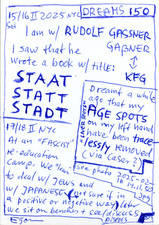 15/16 II 2025 NYC
DREAMS 150
I am w/ RUDOLF GASSNER
I saw that he
GAßNER
wrote a book w/ title:
KFG
STAAT
STATT
STADT
Dreamt a while
ago that my
AGE SPOTS
on my left hand
have been trace-
lessly removed
(via laser?)
17/18 II NYC
At an "FASCIST"
re-education
camp. We learn
to deal w/ JEWS and
w/ JAPANESE
a positive or negative way)
we sit on benches + see/discuss